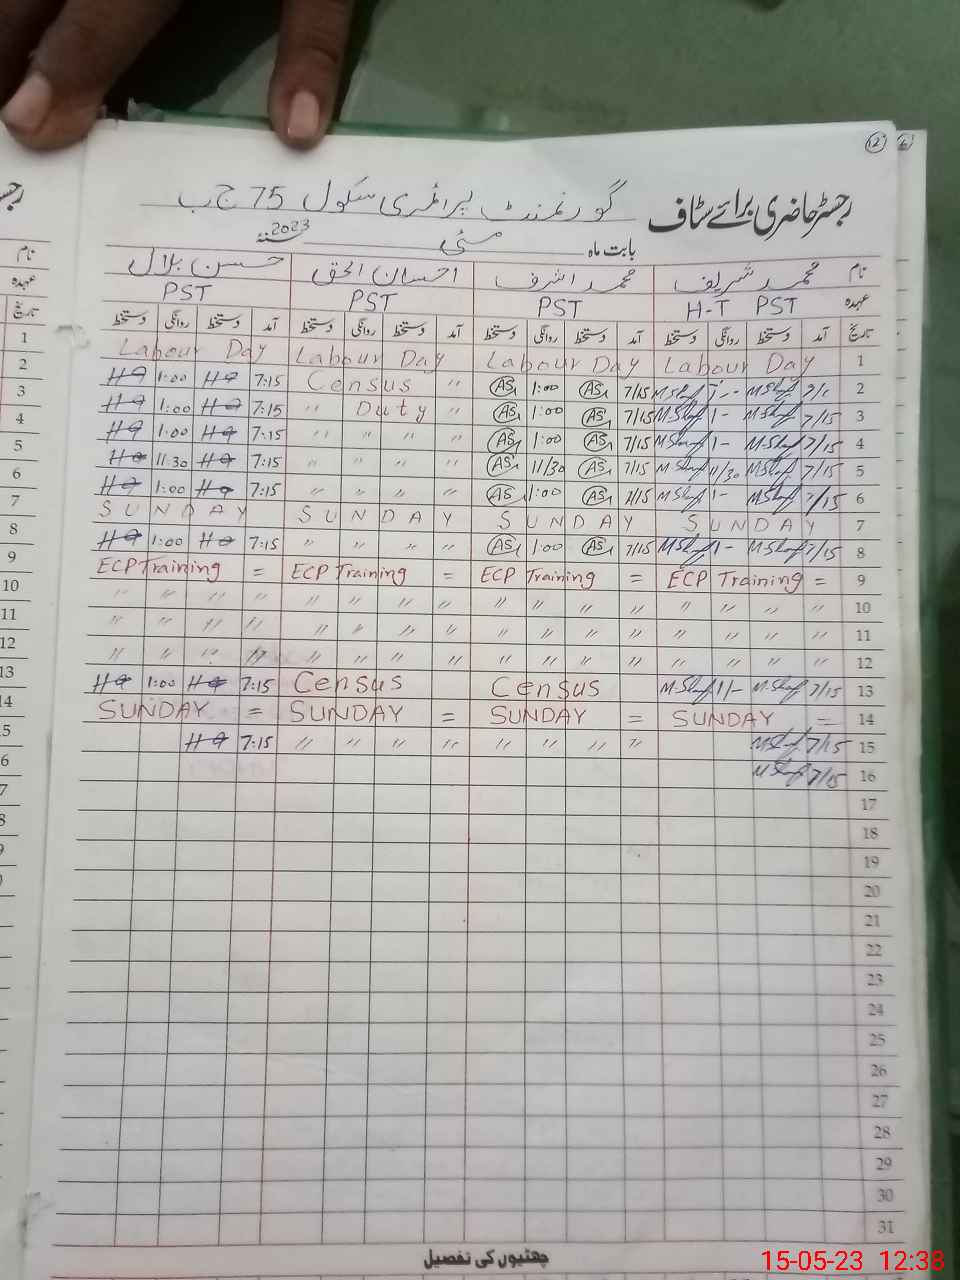 رجسٹر حاضری برائے سٹاف گورنمنٹ پرائمری سکول 75 ج ب
بابت ماہ مئی 2023
نام محمد شریف احسان الحق محمد اشرف حسن بلال
عہدہ H-T PST PST PST PST
تاریخ آمد دستخط روانگی دستخط آمد دستخط روانگی دستخط آمد دستخط روانگی دستخط آمد دستخط روانگی دستخط
Labour Day Labour Day Labour Day Labour Day 1
1:00 7:15 Census " AS 1:00 AS 7/15 2
1:00 7:15 " Duty " AS 1:00 AS 7/15 1- 7/15 3
1:00 7:15 " " " " AS 1:00 AS 7/15 1- 7/15 4
11:30 7:15 " " " " AS 11/30 AS 7/15 11/30 7/15 5
1:00 7:15 " " " " AS 1:00 AS 7/15 1- 7/15 6
SUNDAY SUNDAY SUNDAY SUNDAY 7
1:00 7:15 " " " " AS 1:00 AS 7/15 1- 7/15 8
ECP Training = ECP Training = ECP Training = ECP Training = 9
" " " " " " " " " " " " " " " " 10
" " " " " " " " " " " " " " " " 11
" " " " " " " " " " " " " " " " 12
1:00 7:15 Census Census 1/- 7/15 13
SUNDAY = SUNDAY = SUNDAY = SUNDAY = 14
7:15 " " " " " " " " 7/15 15
7/15 16
17
18
19
20
21
22
23
24
25
26
27
28
29
30
31
چھٹیوں کی تفصیل
15-05-23 12:38